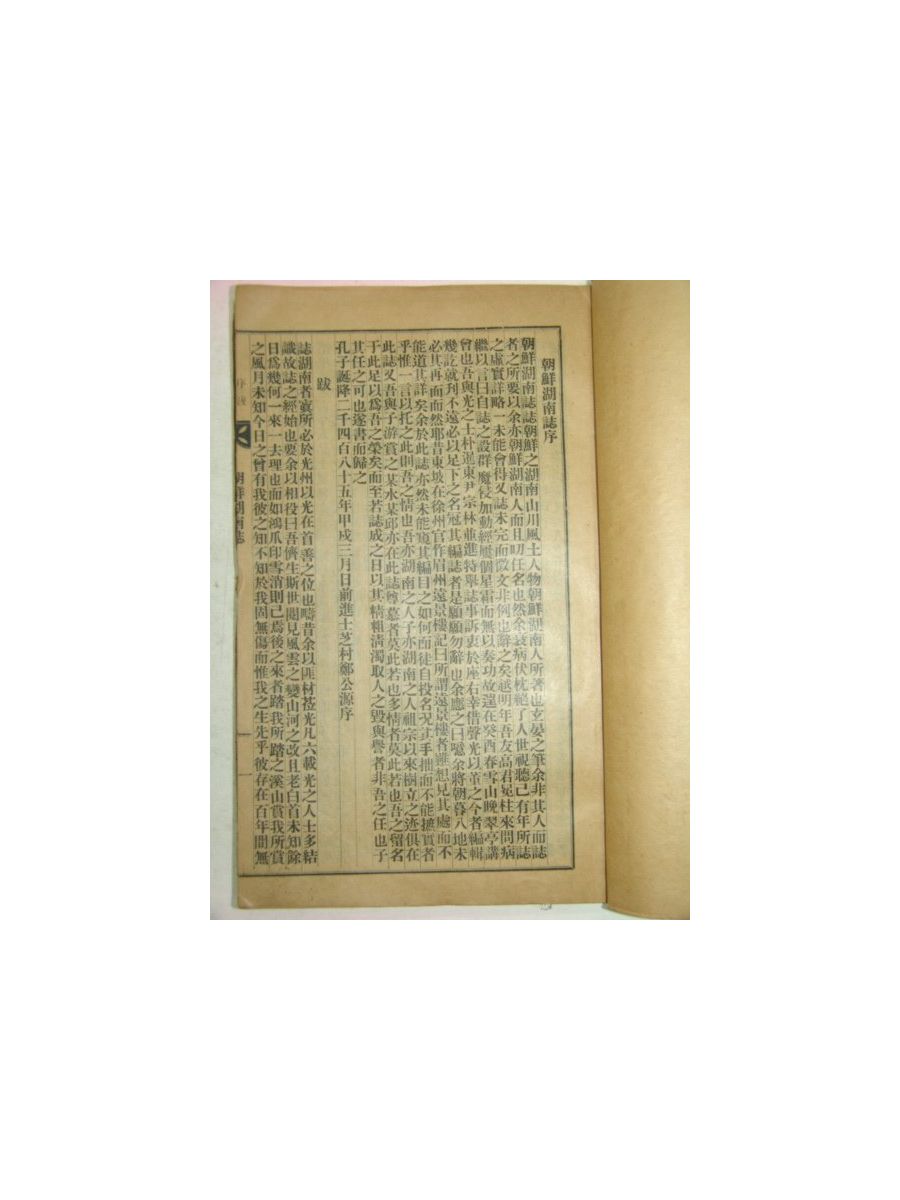 朝鮮湖南誌序
朝鮮湖南誌誌朝鮮之湖南山川風土人物朝鮮湖南人所著也玄晏之筆余非其人而誌
者之所要以余亦朝鮮湖南人而且叨任名也然余衰病伏枕絕了人世視聽已有年所誌
之虛實詳略一未能曾得又誌未完而徵文非例也辭之矣越明年吾友品君冕柱來問病
繼以言曰自誌之設群魔侵加動經曆個星霜而無以奏功故遑在癸酉春雪山晚翠亭講
會也吾與光之士朴暹東尹宗林並進特舉誌事訴衷於座右幸借聲光以董之今者編輯
幾訖就刋不遠必以足下之名冠其編誌者是願願勿辭也余應之曰噫余將朝暮入地未
必其再面而然耶昔東坡在徐州官作眉州遠景樓記曰所謂遠景樓者雖想見其處而不
能道其詳矣余於此誌亦然未能窺其編目之如何而徒自投名况其手拙而不能摭實者
乎惟一言以托之此則吾之情也吾亦湖南之人子亦湖南之人祖宗以來樹立之迹俱在
此誌又吾與子游賞之某水某邱亦在此誌尊慕者莫此若也多情者莫此若也吾之留名
于此足以爲吾之榮矣而至若誌成之日以其精粗淸濁取人之毀與譽者非吾之任也子
其任之可也遂書而歸之
孔子誕降二千四百八十五年甲戌三月日前進士芝村鄭公源序
跋
誌湖南者寔所必於光州以光在首善之位也疇昔余以匪材莅光凡六載光之人士多結
識故誌之經始也要余以相役曰吾儕生斯世閱見風雲之變山河之改且老白首未知餘
日爲幾何一來一去理也而如鴻爪印雪消則已焉後之來者踏我所踏之溪山賞我所賞
之風月未知今日之曾有我彼之知不知於我固無傷而惟我之生先乎彼存在百年間無
朝鮮湖南誌
序跋
一